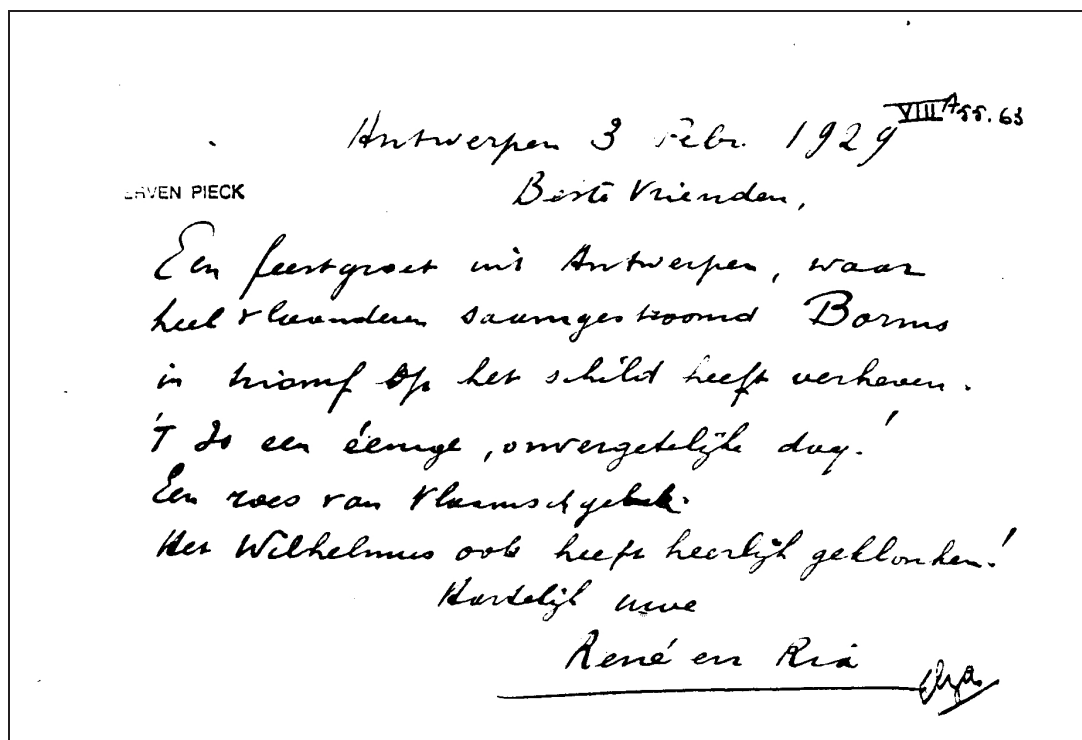 VIII A 55.63
Antwerpen 3 Febr. 1929
ERVEN PIECK
Beste Vrienden,
Een feestgroet uit Antwerpen, waar
heel Vlaanderen saamgestroomd Borms
in triomf op het schild heeft verheven.
'T Is een éenige, onvergetelijke dag!
Een roes van Vlaamsch geluk.
Het Wilhelmus ook heeft heerlijk geklonken!
Hartelijk uwe
René en Ria